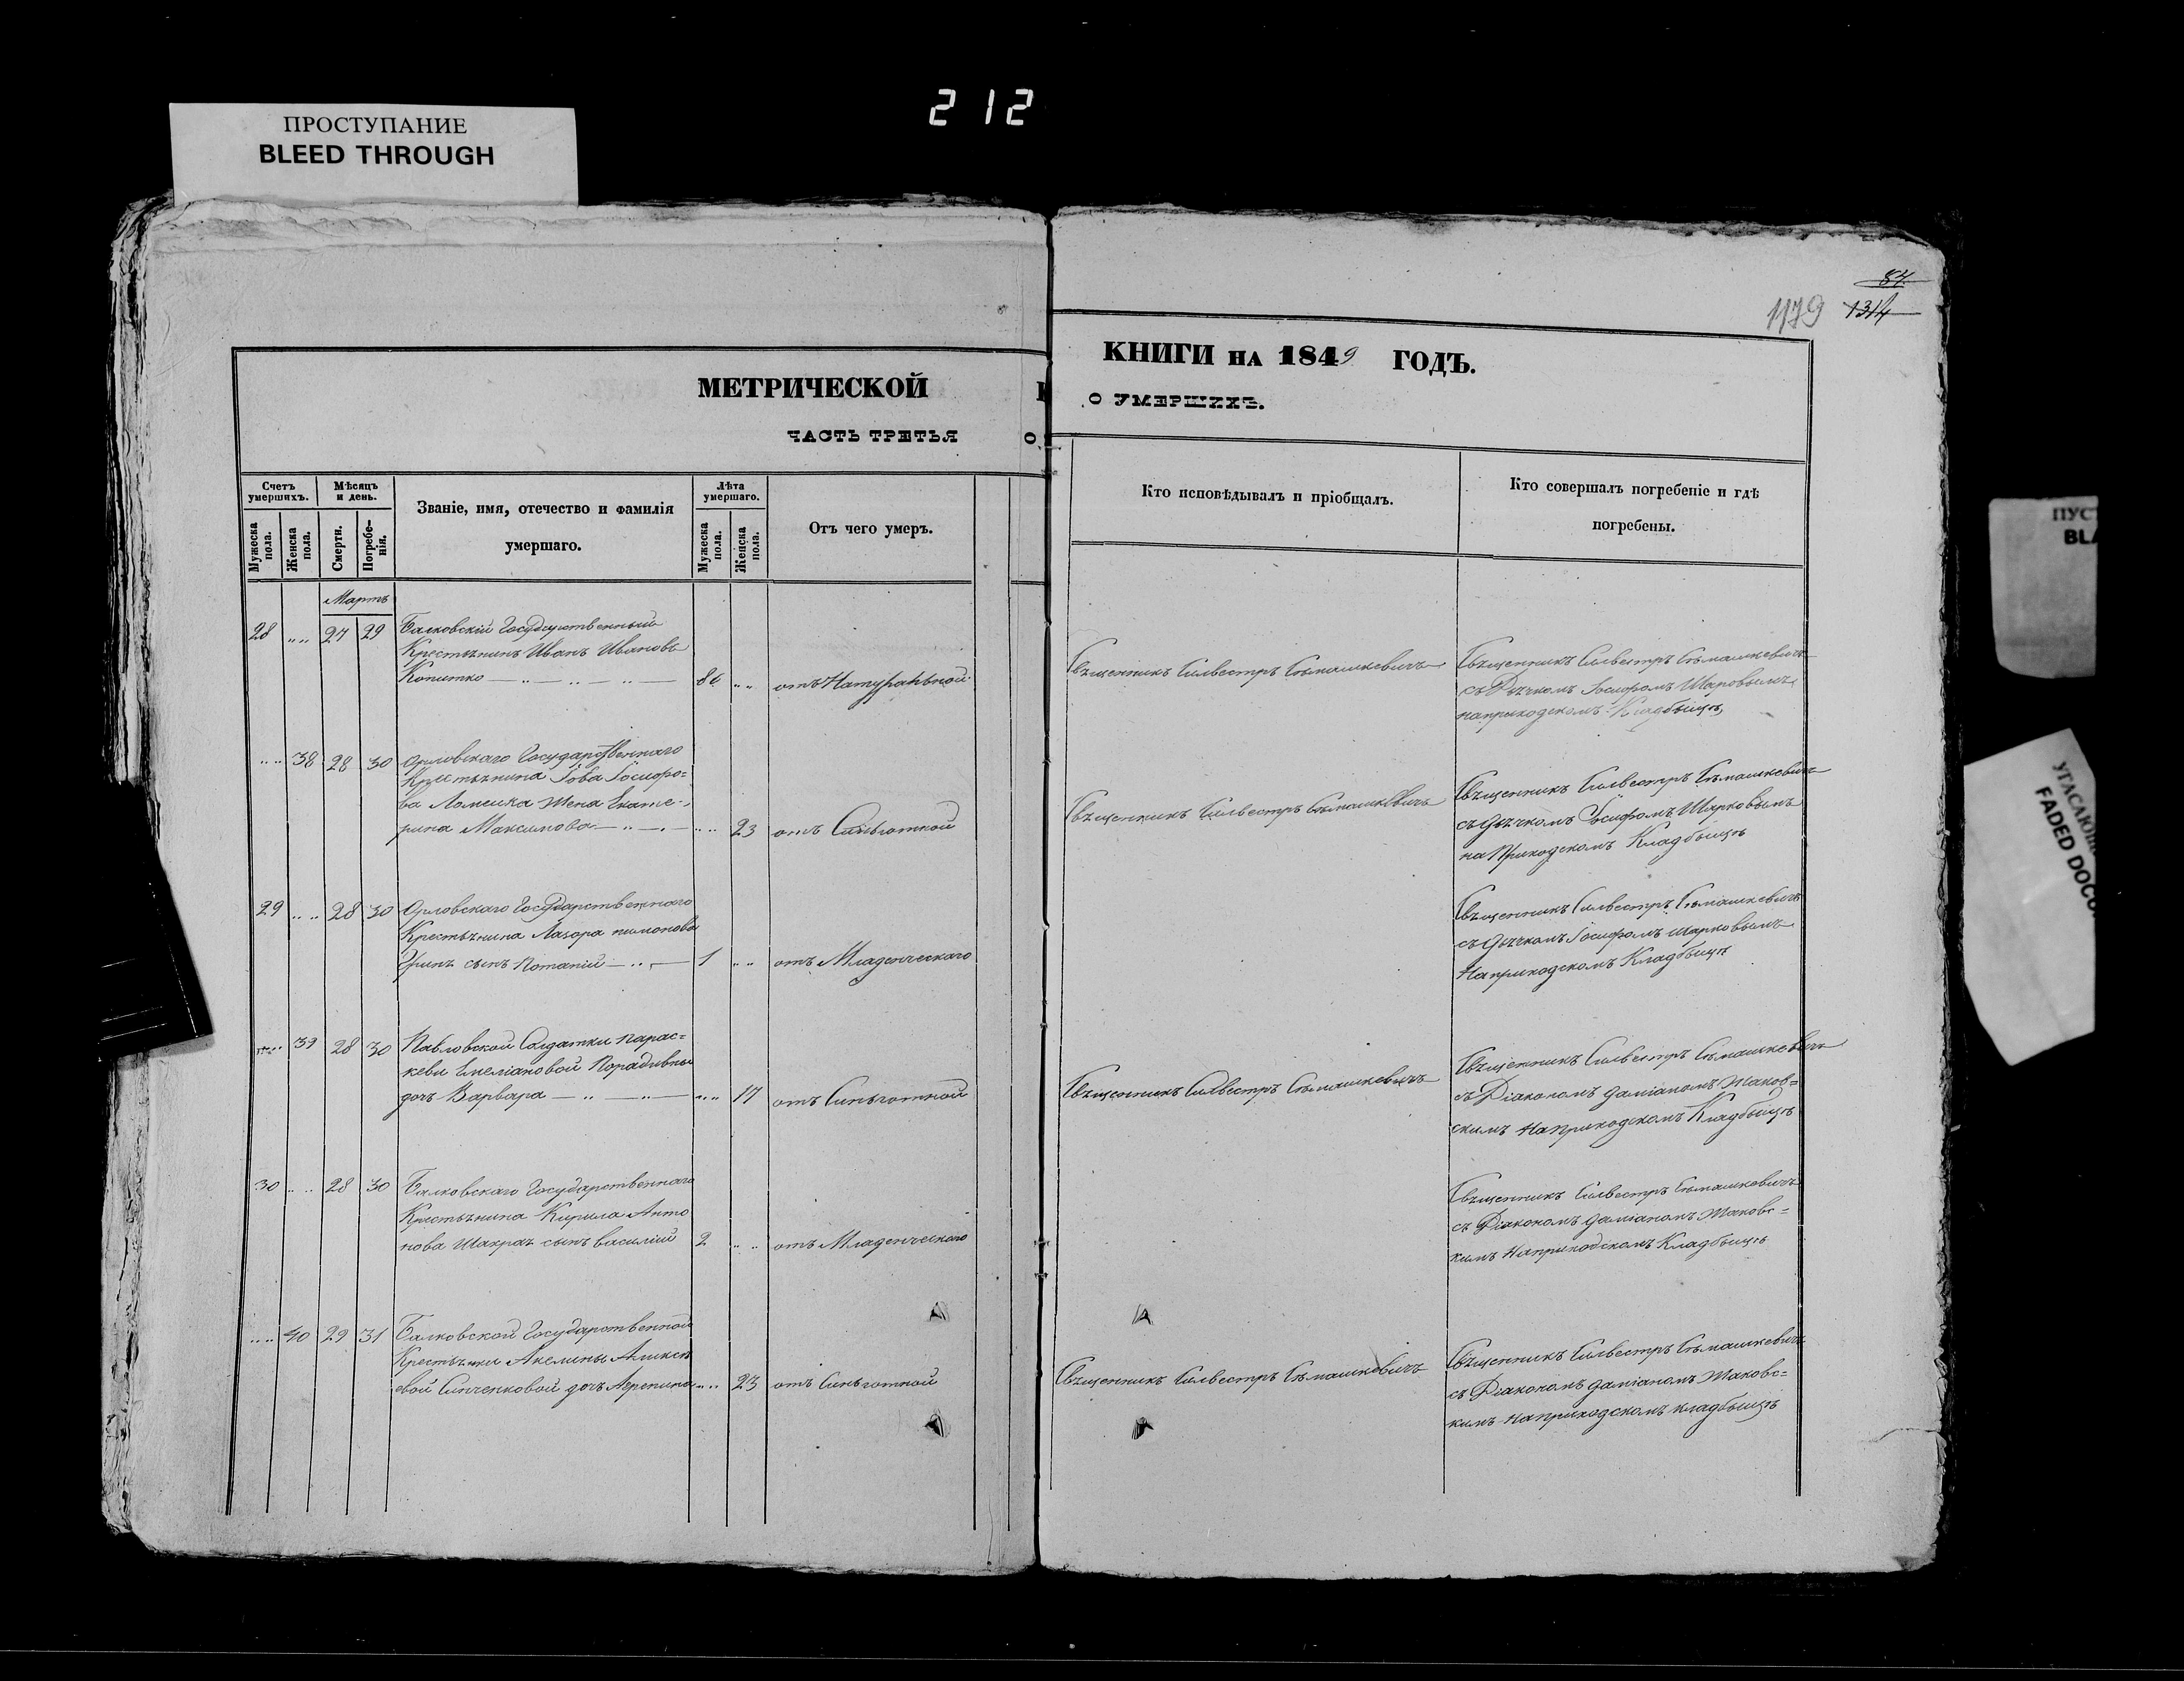 2 12
ПРОСТУПАНИЕ
BLEED THROUGH
84
1179 1314
МЕТРИЧЕСКОЙ
ЧАСТЬ ТРЕТЬЯ
КНИГИ НА 1849 ГОДЪ.
О УМЕРШИХЪ.
Счетъ умершихъ.
Мѣсяцъ и день.
Званіе, имя, отечество и фамилія умершаго.
Лѣта умершаго.
Отъ чего умеръ.
Кто исповѣдывалъ и пріобщалъ.
Кто совершалъ погребеніе и гдѣ погребены.
Мужеска пола.
Женска пола.
Смерти.
Погребенія.
Мужеска пола.
Женска пола.
Мартъ
28 27 29 Балковскій Государственный
Крестьянинъ Иванъ Ивановъ
Копитко 86 отъ Натуральной
Священникъ Силвестръ Сѣмашкевичъ
Священникъ Силвестръ Сѣмашкевичъ
съ Дьячкомъ Іосифомъ
на приходскомъ Кладбищѣ
38 28 30 Орловскаго Государственнаго
Крестьянина Іова Іосифо=
ва жена Екате-
рина Максимова 23 отъ
Священникъ Силвестръ Сѣмашкевичъ
Священникъ Силвестръ Сѣмашкевичъ
съ Дьячкомъ Іосифомъ Шарковымъ
на Приходскомъ Кладбищѣ
29 28 30 Орловскаго Государственнаго
Крестьянина Лазора пимонова
сынъ Потапій 1 отъ Младенческаго
Священникъ Силвестръ Сѣмашкевичъ
съ Дьячкомъ Іосифомъ Шарковымъ
На приходскомъ Кладбищѣ
39 28 30 Павловской Солдатки Парас=
кеви Емеліановой
дочь Варвара 17 отъ
Священникъ Силвестръ Сѣмашкевичъ
Священникъ Силвестръ Сѣмашкевичъ
съ Діакономъ Даміаномъ Маков=
скимъ На приходскомъ Кладбищѣ
30 28 30 Балковскаго Государственнаго
Крестьянина Кирила Анто
нова сынъ василій 2 отъ Младенческаго
Священникъ Силвестръ Сѣмашкевичъ
съ Діакономъ Даміаномъ Маковс=
кимъ На приходскомъ Кладбищѣ
40 29 31 Балковской Государственной
Крестьянки Акелины Аликсѣ
евой Синченковой дочь 23 отъ
Священникъ Силвестръ Сѣмашкевичъ
Священникъ Силвестръ Сѣмашкевичъ
съ Діакономъ Даміаномъ Маковс=
кимъ На приходскомъ кладбищѣ
ПУСТ
BLA
УГАСАЮЩ
FADED DOCU